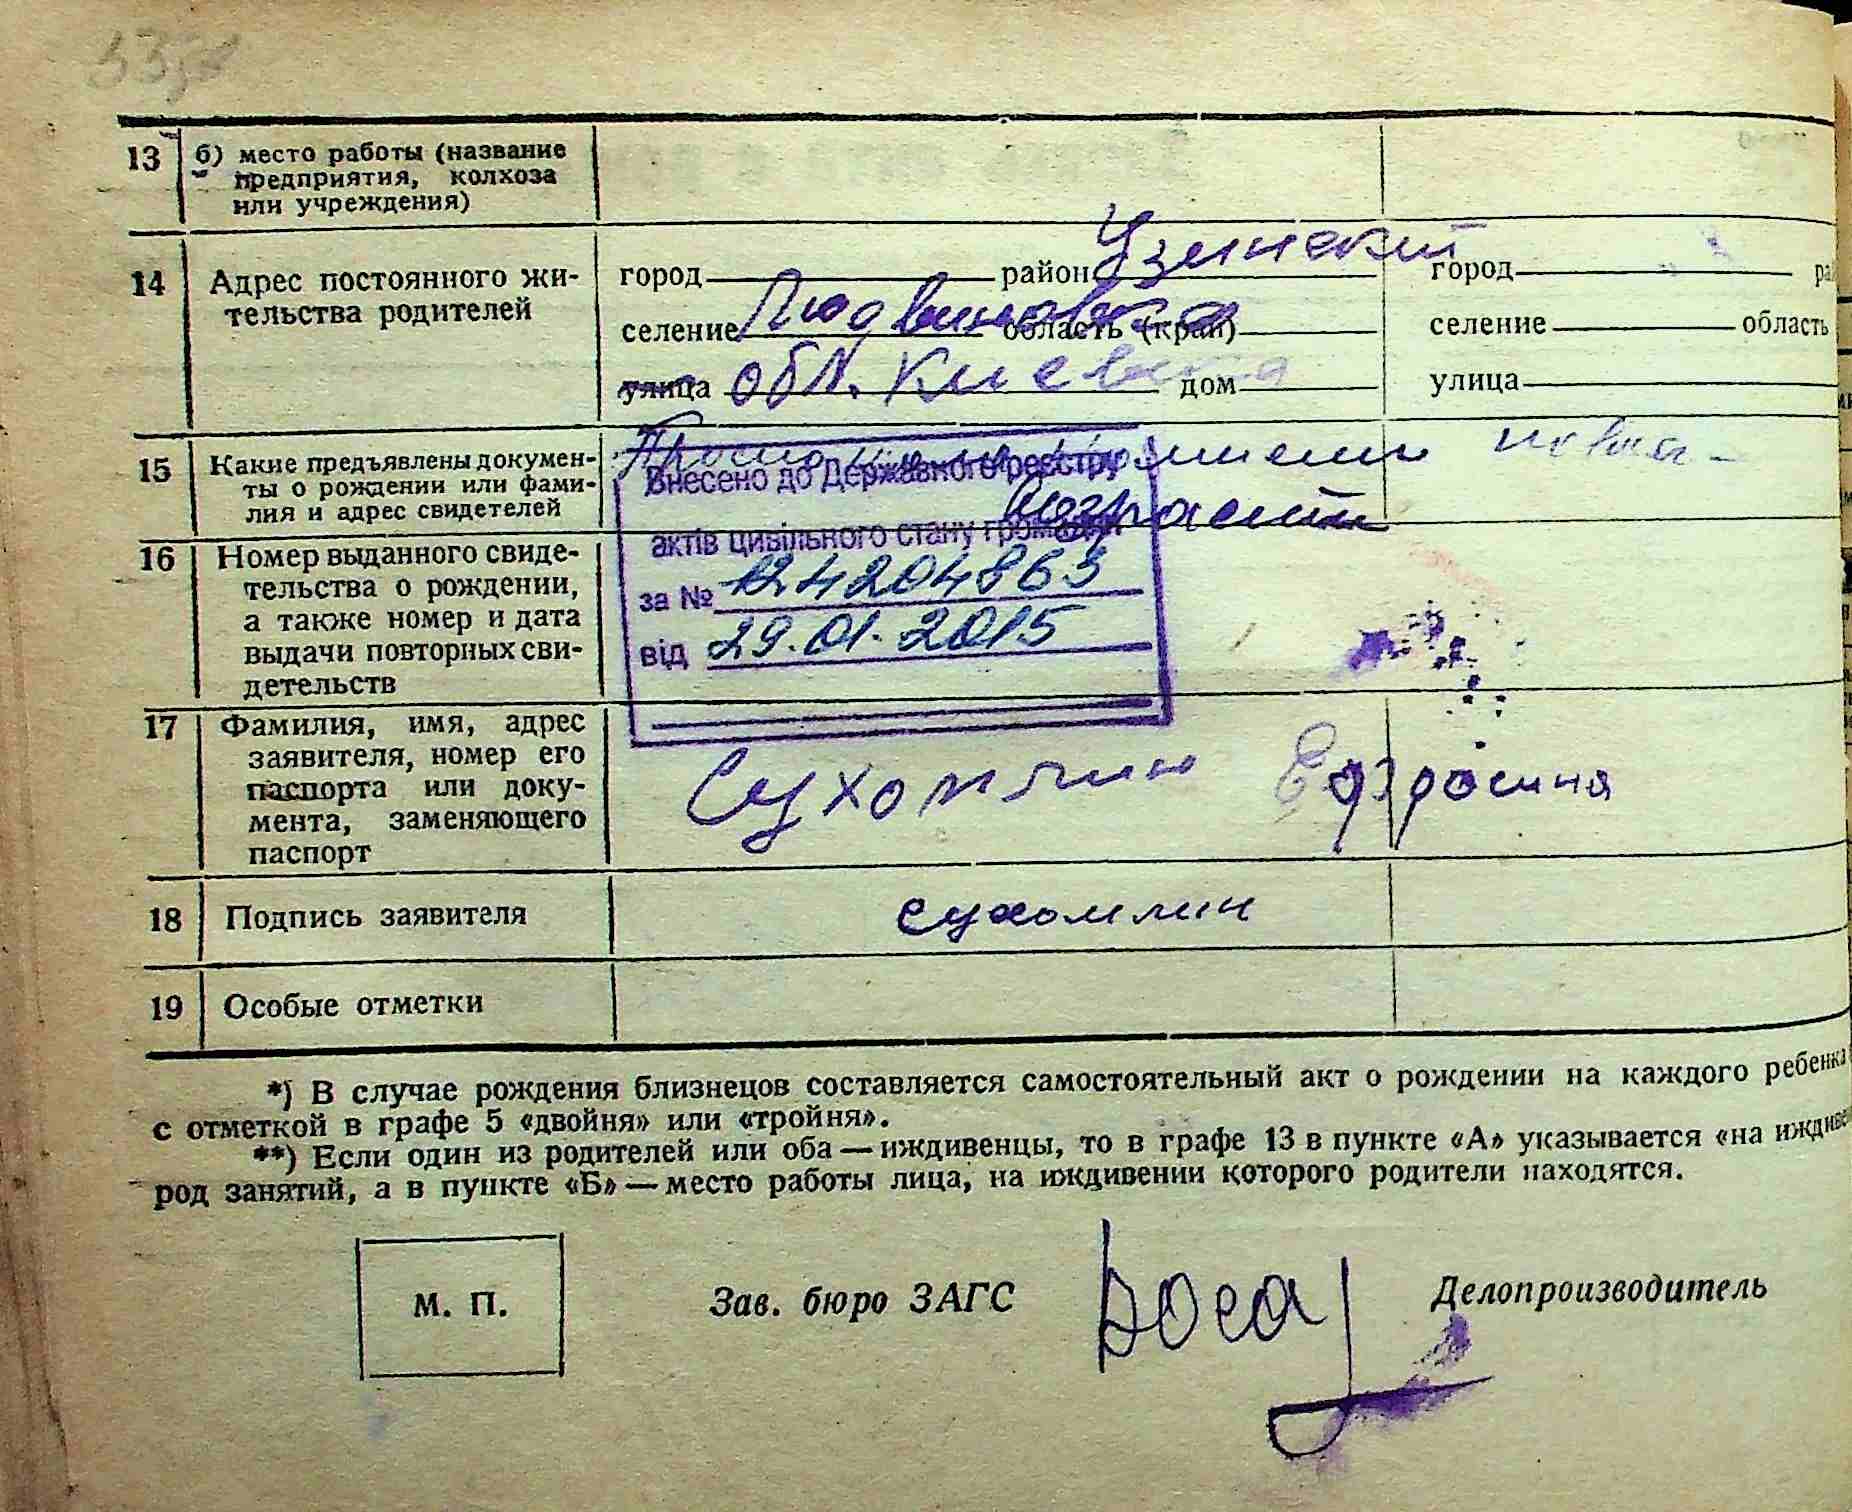 13 б) место работы (название
предприятия, колхоза
или учреждения)
14 Адрес постоянного жи-
тельства родителей
город район Узинский
селение Людвиновка область (край)
улица обл. Киевская дом
город
селение область
улица
15 Какие предъявлены докумен-
ты о рождении или фами-
лия и адрес свидетелей
возраст
Внесено до Державного реєстру
актів цивільного стану громадян
за № 124204863
від 29.01.2015
16 Номер выданного свиде-
тельства о рождении,
а также номер и дата
выдачи повторных сви-
детельств
17 Фамилия, имя, адрес
заявителя, номер его
паспорта или доку-
мента, заменяющего
паспорт
Сухомлин Ефросиния
18 Подпись заявителя Сухомлин
19 Особые отметки
*) В случае рождения близнецов составляется самостоятельный акт о рождении на каждого ребенка
с отметкой в графе 5 «двойня» или «тройня».
**) Если один из родителей или оба — иждивенцы, то в графе 13 в пункте «А» указывается «на
род занятий, а в пункте «Б» — место работы лица, на иждивении которого родители находятся.
М. П. Зав. бюро ЗАГС Делопроизводитель